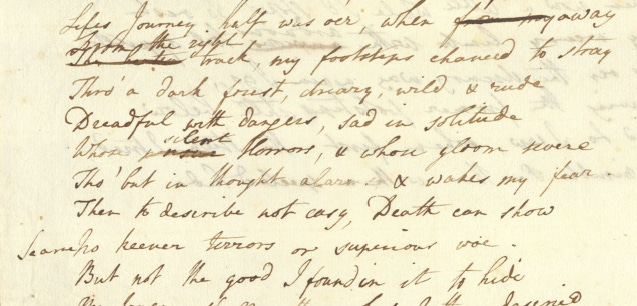 Lifes Journey half was o'er, when away
From the right track, my footsteps chanced to stray
Thro' a dark forest, dreary, wild, & rude
Dreadful with dangers, sad in solitude
Whose silent Horrors, & whose gloom severe
Tho' but in thought alarm & wakes my fear.
Then to describe not easy, Death can show
Scarce keener terrors or superious woe.
But not the good I found in it to hide